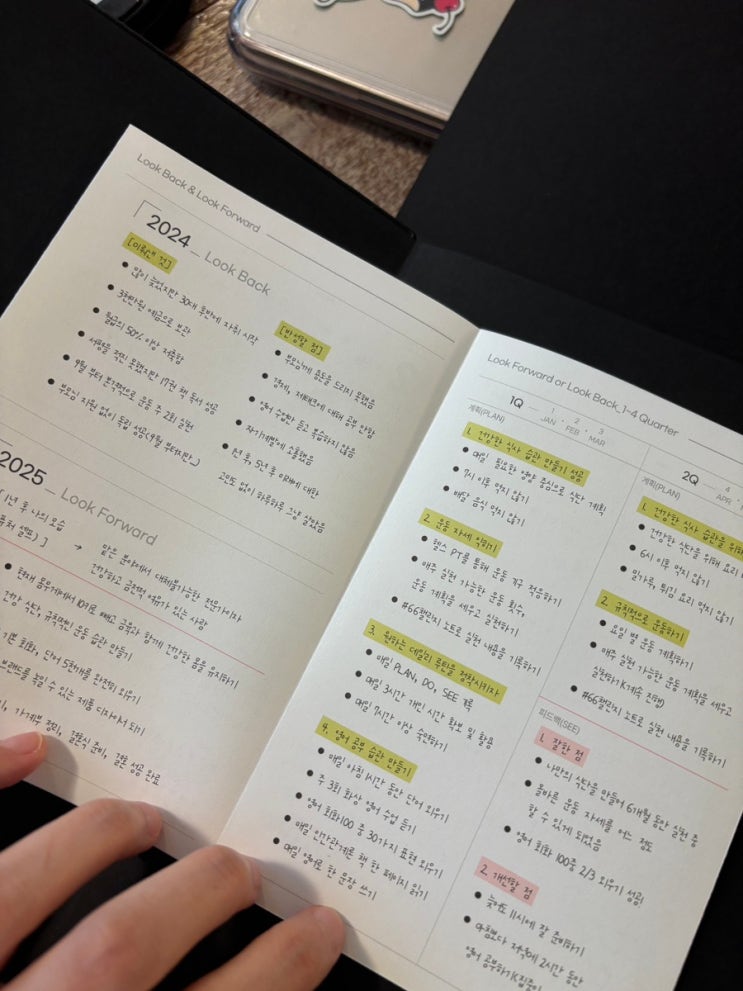 Look Back & Look Forward
2024 _ Look Back
[이뤄낸 것]
많이 늦었지만 30대 후반에 자취 시작
3천만원 예금으로 보관
월급의 50% 이상 저축함
서평을 적진 못했지만 17권 책 독서 성공
9월 부터 본격적으로 운동 주 2회 실천
부모님 지원 없이 독립 성공(9월 부터지만..)
[반성할 점]
부모님께 용돈을 드리지 못했음
경제, 재테크에 대해 공부 안함
영어 수업만 듣고 복습하지 않음
자기계발에 소홀했음
1년 후, 5년 후 미래에 대한
고민도 없이 하루하루 그냥 살았음
2025 _ Look Forward
[1년 후 나의 모습
] → 맡은 분야에서 대체불가능한 전문가이자
건강하고 금전적 여유가 있는 사람
현재 몸무게에서 10키로 빼고 근육과 함께 건강한 몸을 유지하기
건강 식단, 규칙적인 운동 습관 만들기
기본 회화, 단어 5천개를 완전히 외우기
브랜드를 높일 수 있는 제품 디자이너 되기
가계부 정리, 결혼식 준비, 결혼 성공 완료
Look Forward or Look Back_1-4 Quarter
1Q
1 JAN · 2 FEB · 3 MAR
계획(PLAN)
1. 건강한 식사 습관 만들기 성공
매일 필요한 영양 중심으로 식단 계획
7시 이후 먹지 않기
배달 음식 먹지 않기
2. 운동 자세 익히기
헬스 PT를 통해 운동 기구 적응하기
매주 실천 가능한 운동 횟수,
운동 계획을 세우고 실천하기
#66챌린지 노트로 실천 내용을 기록하기
3. 원하는 데일리 루틴을 정착시키자
매일 PLAN, DO, SEE 기록
매일 3시간 개인 시간 확보 및 활용
매일 7시간 이상 수면하기
4. 영어 공부 습관 만들기
매일 아침 1시간 동안 단어 외우기
주 3회 화상 영어 수업 듣기
영어 회화100 중 30가지 표현 외우기
매일 인간관계론 책 한 페이지 읽기
매일 영어로 한 문장 쓰기
2Q
4 APR ·
계획(PLAN)
1. 건강한 식사 습관을 위해
건강한 식단을 위해 요리
6시 이후 먹지 않기
밀가루, 튀김 요리 먹지 않기
2. 규칙적으로 운동하기
요일 별 운동 계획하기
매주 실천 가능한 운동 계획을 세우고
실천하기(계속 진행)
#66챌린지 노트로 실천 내용을 기록하기
피드백(SEE)
1. 잘한 점
나만의 식단을 만들어 6개월 동안 실천 중
올바른 운동 자세를 어느 정도
할 수 있게 되었음
영어 회화 100중 2/3 외우기 성공!
2. 개선할 점
늦어도 11시에 잘 준비하기
아침보다 저녁에 2시간 동안
영어 공부하기